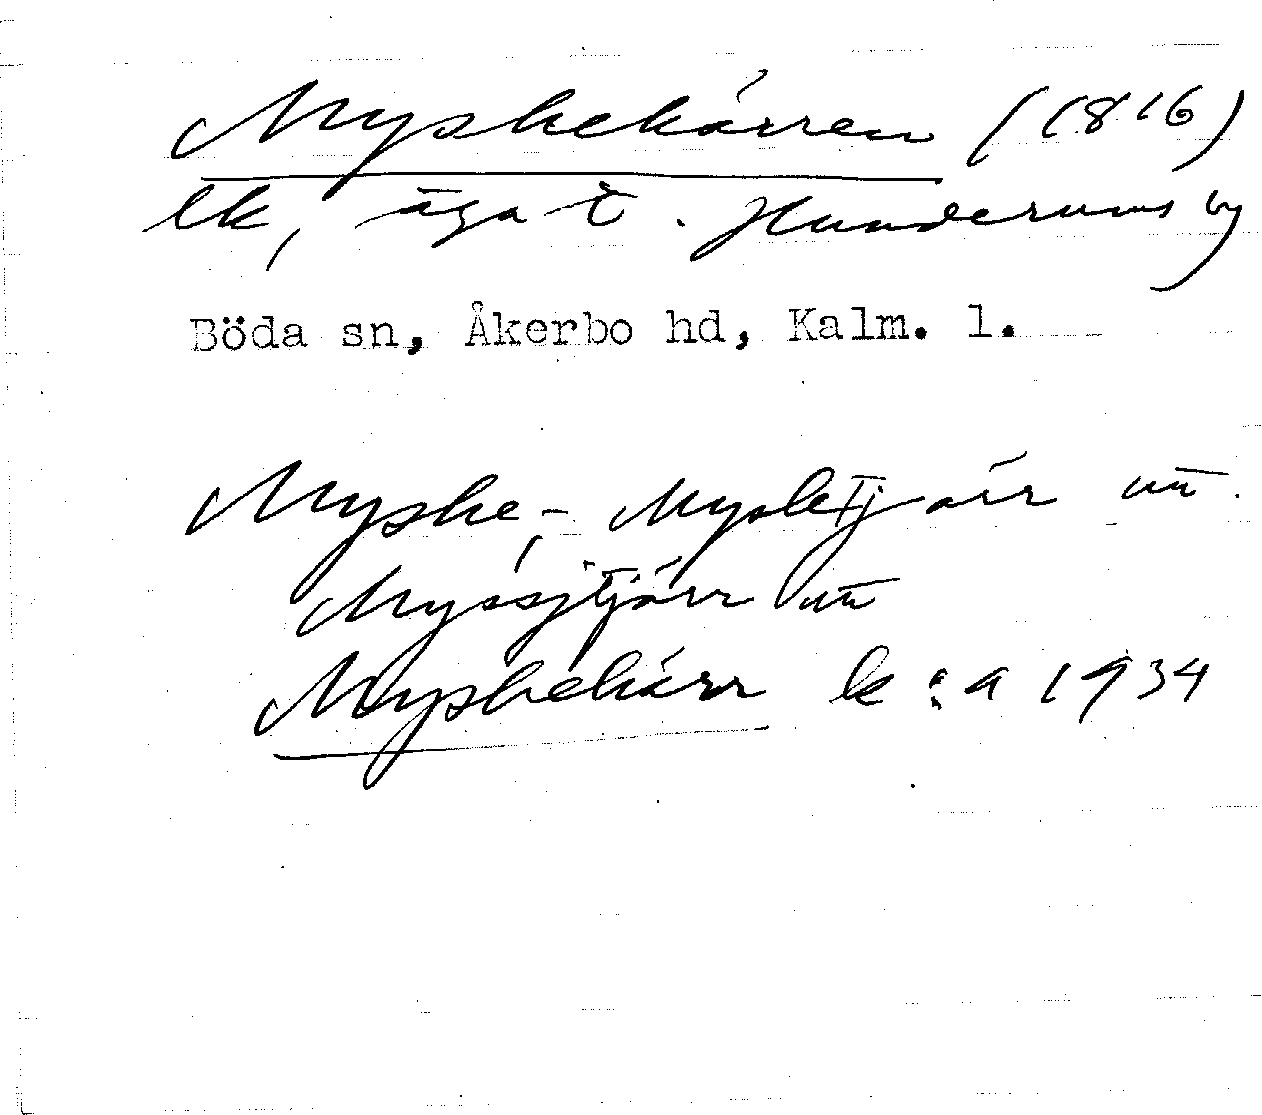 Myskekärren (1816)
lk, äga t. Hunderums by
Böda sn, Åkerbo hd, Kalm. l.
Myske-, Mysktjärr
Myssjtjärr
Myskekärr k:a 1934